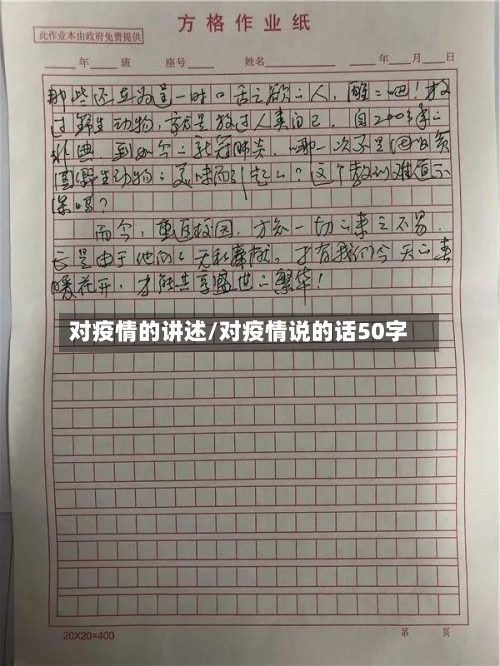 方格作业纸
此作业本由政府免费提供
年 班 座号 姓名 年 月 日
那些还在为逞一时口舌之欲之人,醒一醒吧!放
过野生动物,就是放过人类自己,自2003年之
非典,到如今之新冠肺炎,哪一次不是因为贪
图野生动物之美味而引起的?这个教训难道不
深吗?
而今,重返校园,方知一切之来之不易,
正是由于他们之无私奉献,才有我们今天之春
暖花开,才能共享盛世之繁华!
对疫情的讲述/对疫情说的话50字
20X20=400
第 页